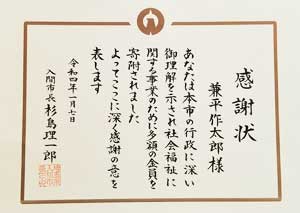 感謝状
兼平作太郎様
あなたは本市の行政に深い
御理解を示され社会福祉に
関する事業のために多額の金員を
寄附されました
よってここに深く感謝の意を
表します
令和四年一月七日
入間市長杉島理一郎